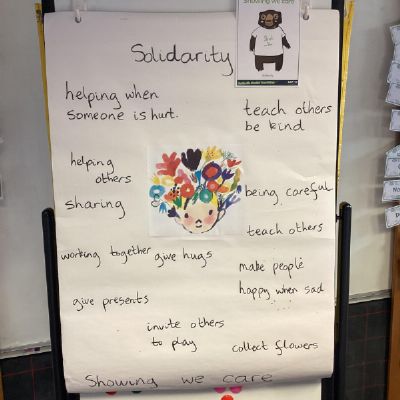 Showing we care
Solidarity
helping when
someone is hurt.
teach others
be kind
helping
others
sharing
being careful
teach others
working together
give hugs
make people
happy when sad
give presents
invite others
to play
collect flowers
Showing we care